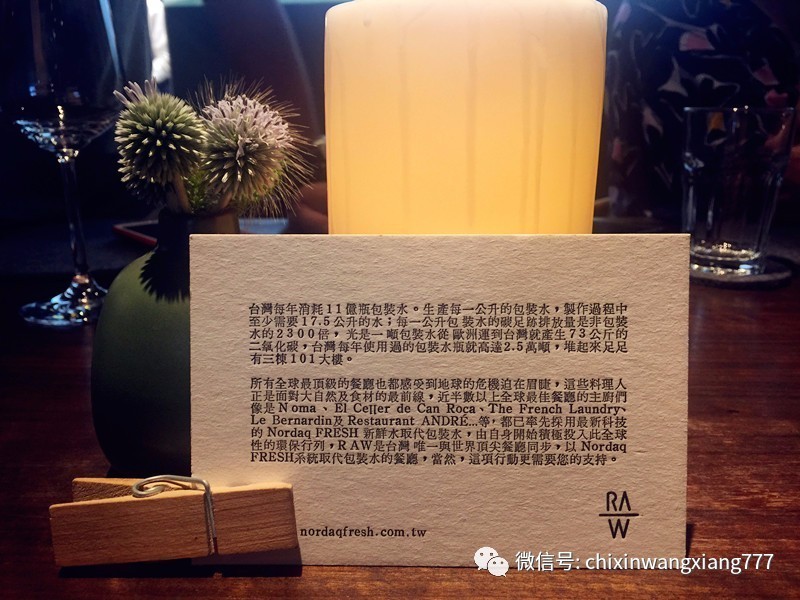 台灣每年消耗11億瓶包裝水。生產每一公升的包裝水，製作過程中
至少需要17.5公升的水；每一公升包裝水的碳足跡排放量是非包裝
水的2300倍，光是一噸包裝水從歐洲運到台灣就產生73公斤的
二氧化碳，台灣每年使用過的包裝水瓶就高達2.5萬噸，堆起來足足
有三棟101大樓。
所有全球最頂級的餐廳也都感受到地球的危機迫在眉睫，這些料理人
正是面對大自然及食材的最前線，近半數以上全球最佳餐廳的主廚們
像是Noma、El Celler de Can Roca、The French Laundry、
Le Bernardin及Restaurant ANDRÉ...等，都已率先採用最新科技
的 Nordaq FRESH 新鮮水取代包裝水，由自身開始積極投入此全球
性的環保行列，RAW是台灣唯一與世界頂尖餐廳同步，以 Nordaq
FRESH系統取代包裝水的餐廳，當然，這項行動更需要您的支持。
RA
W
nordaqfresh.com.tw
微信号: chixinwangxiang777